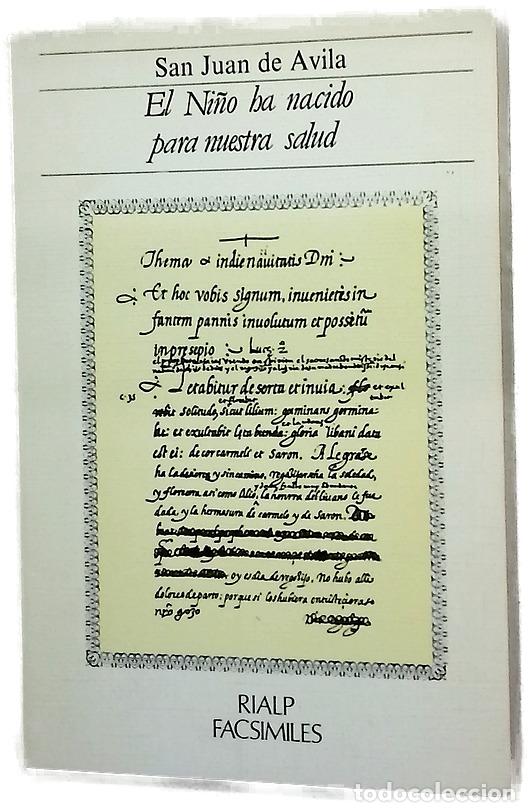 San Juan de Avila
El Niño ha nacido
para nuestra salud
Thema in die nativitatis Dni
Et hoc vobis signum, invenietes in
fantem pannis involutum et possetū
in presepio Luc. 2
Letabitur deserta et invia: et exul
c. 35
vobit solitudo, sicut lilium: germinans germina
bit: et exultabit leta bunda: gloria libani data
est ei: decor carmeli et Saron. Alegrarse
ha la desierta y sin camino, regozijarse ha la soledad,
y florecera asi como lilio, la honrra del libano le fue
dada y la hermosura de carmelo y de Saron.
oy es dia de regozijo. No hubo alli
dolores de parto: porque si los hubiera
nrō gozo
RIALP
FACSIMILES
todocoleccion